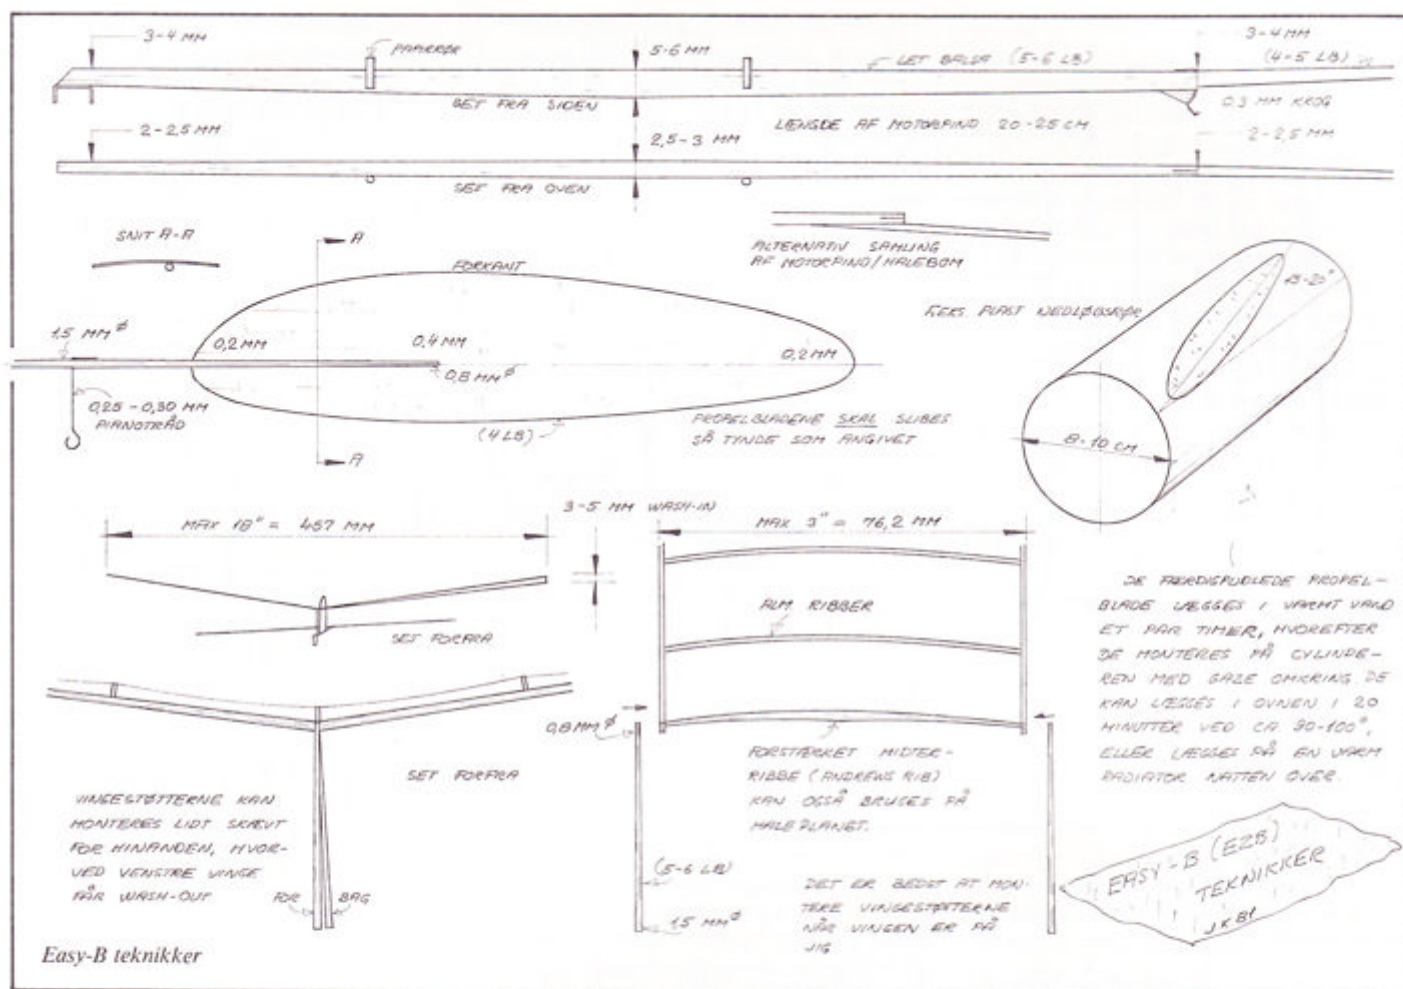 3-4 MM
PAPIRRØR
5-6 MM
LET BALSA (5-6 LB)
3-4 MM
(4-5 LB)
SET FRA SIDEN
LÆNGDE AF MOTORPIND 20-25 CM
0.3 MM KROG
2-2,5 MM
2,5-3 MM
2-2,5 MM
SET FRA OVEN
SNIT A-A
A
FORKANT
ALTERNATIV SAMLING
AF MOTORPIND/HALEBOM
F.EKS. PLAST NEDLØBSRØR
15-20°
1.5 MM ø
0,2 MM
0,4 MM
0,2 MM
0,8 MM ø
0,25-0,30 MM
PIANOTRÅD
(4 LB)
PROPELBLADENE SKAL SLIBES
SÅ TYNDE SOM ANGIVET
A
8-10 CM
MAX 18" = 457 MM
3-5 MM WASH-IN
MAX 3" = 76,2 MM
ALM RIBBER
SET FORFRA
DE FÆRDIGPUDSEDE PROPEL-
BLADE LÆGGES I VARMT VAND
ET PAR TIMER, HVOREFTER
DE MONTERES PÅ CYLINDE-
REN MED GAZE OMKRING. DE
KAN LÆGGES I OVNEN I 20
MINUTTER VED CA 90-100°,
ELLER LÆGGES PÅ EN VARM
RADIATOR NATTEN OVER.
0,8 MM ø
SET FORFRA
FORSTÆRKET MIDTER-
RIBBE (ANDREWS RIB)
KAN OGSÅ BRUGES PÅ
HALEPLANET.
VINGESTØTTERNE KAN
MONTERES LIDT SKÆVT
FOR HINANDEN, HVOR-
VED VENSTRE VINGE
FÅR WASH-OUT
FOR
BAG
(5-6 LB)
1.5 MM ø
DET ER BEDST AT MON-
TERE VINGESTØTTERNE
NÅR VINGEN ER PÅ
JIG
EASY-B (EZB)
TEKNIKKER
JK 81
Easy-B teknikker